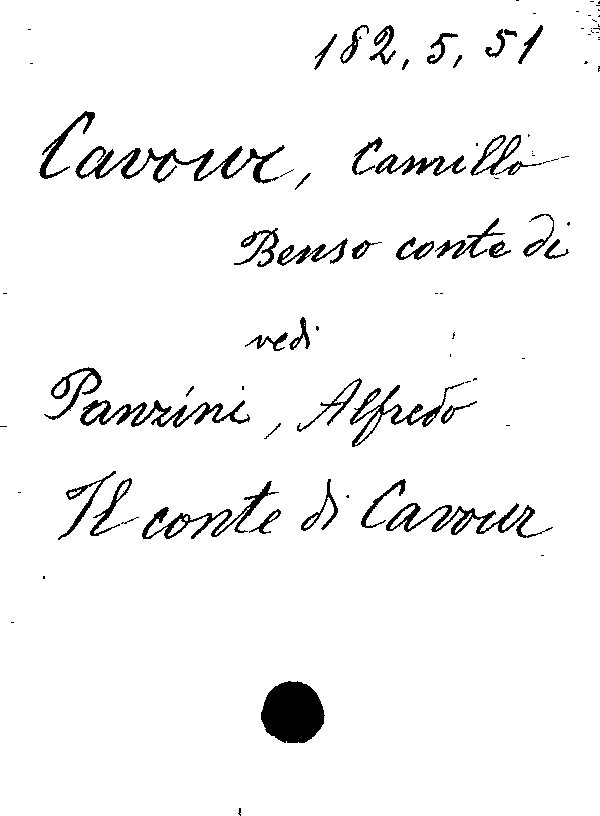 182, 5, 51
Cavour, Camillo
Benso conte di
vedi
Panzini, Alfredo
Il conte di Cavour